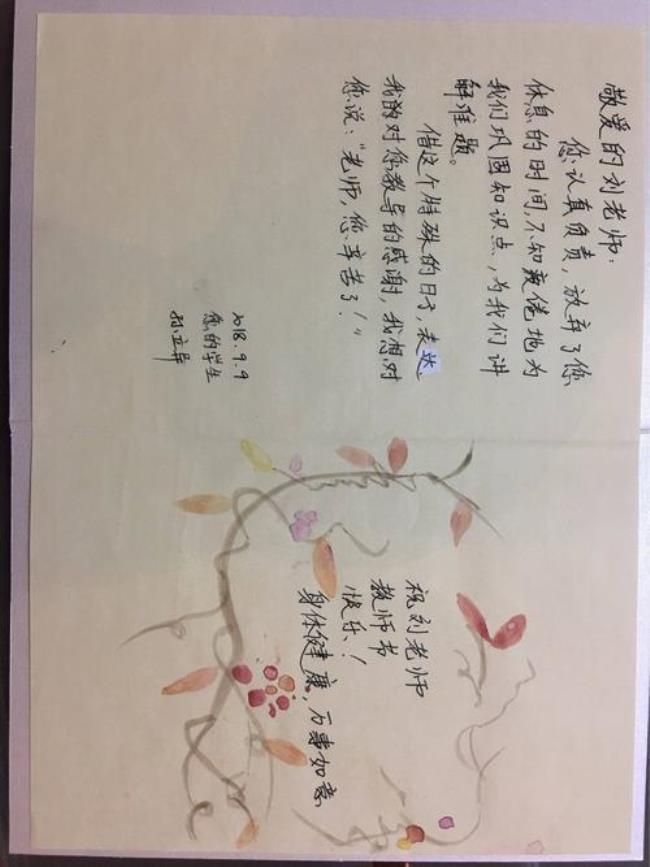 敬爱的刘老师：
您认真负责，放弃了您
休息的时间，不知疲倦地为
我们巩固知识点，为我们讲
解难题。
借这个特殊的日子，表达
我的对您教导的感谢，我想对
您说：“老师，您辛苦了！”
2018.9.9
您的学生
孙立
祝刘老师
教师节
快乐！
身体健康，万事如意